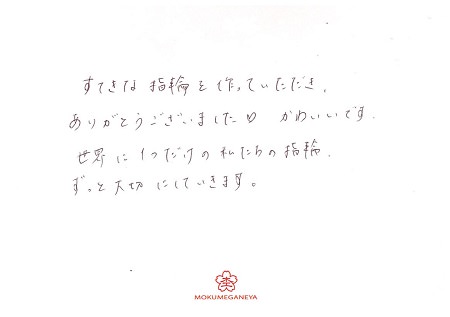 すてきな指輪を作っていただき、
ありがとうございました♡ かわいいです。
世界に1つだけの私たちの指輪、
ずっと大切にしていきます。
MOKUMEGANEYA